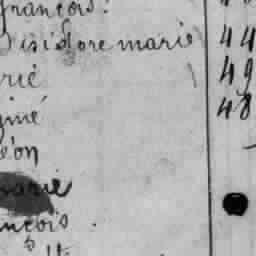 françois.
isidore marie 44
rié 49
gmé 48
éon
marie
ançois.